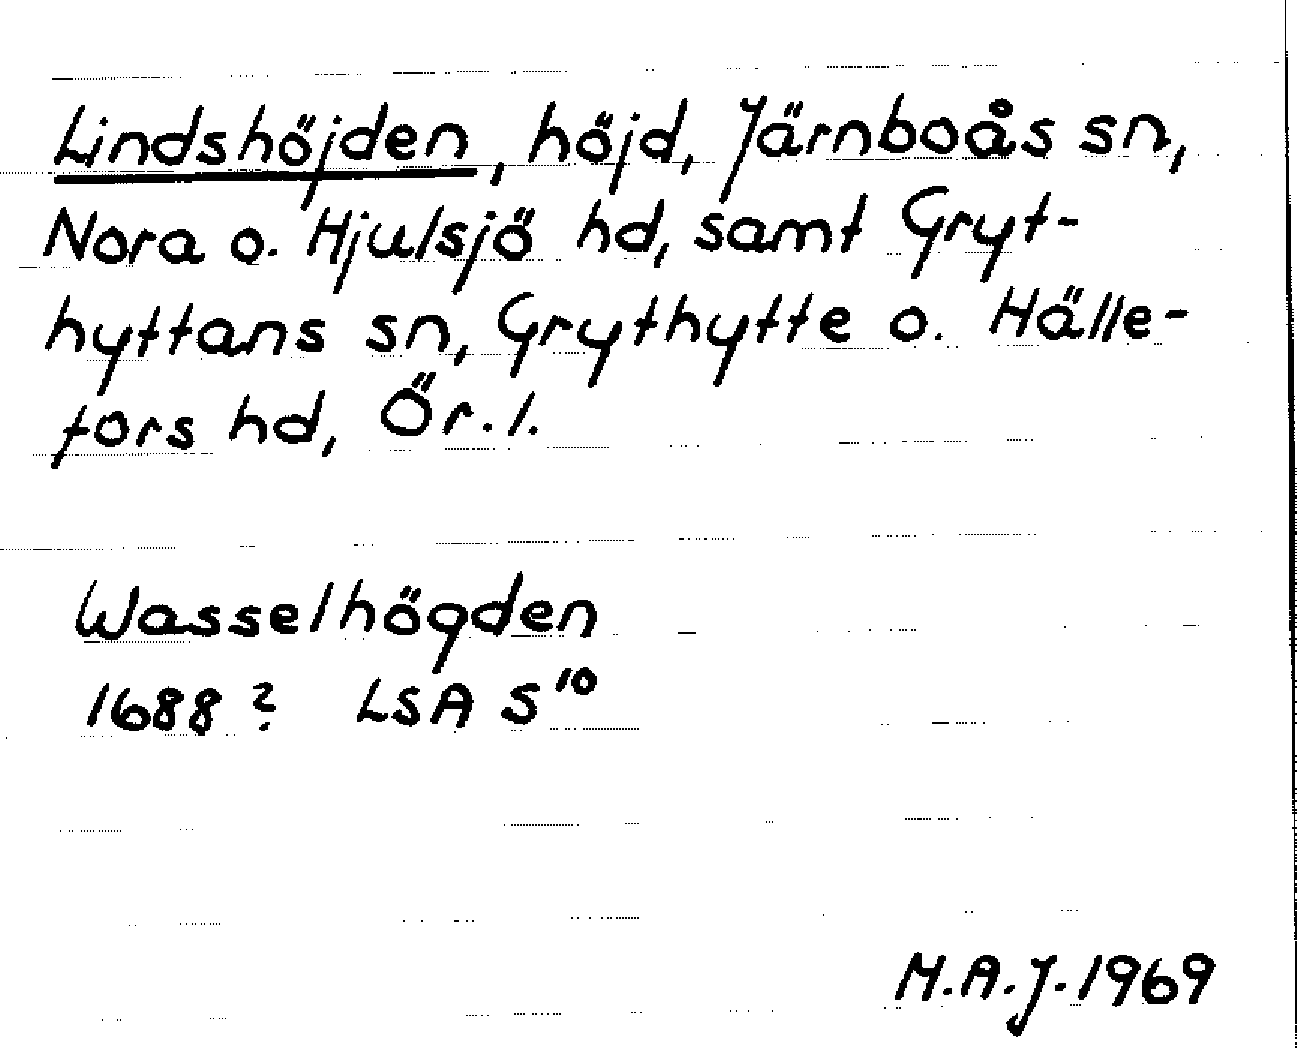 Lindshöjden, höjd, Järnboås sn,
Nora o. Hjulsjö hd, samt Gryt-
hyttans sn, Grythytte o. Hälle-
fors hd, Ör. l.
Wasselhögden
1688? LSA S¹⁰
M.A.J. 1969